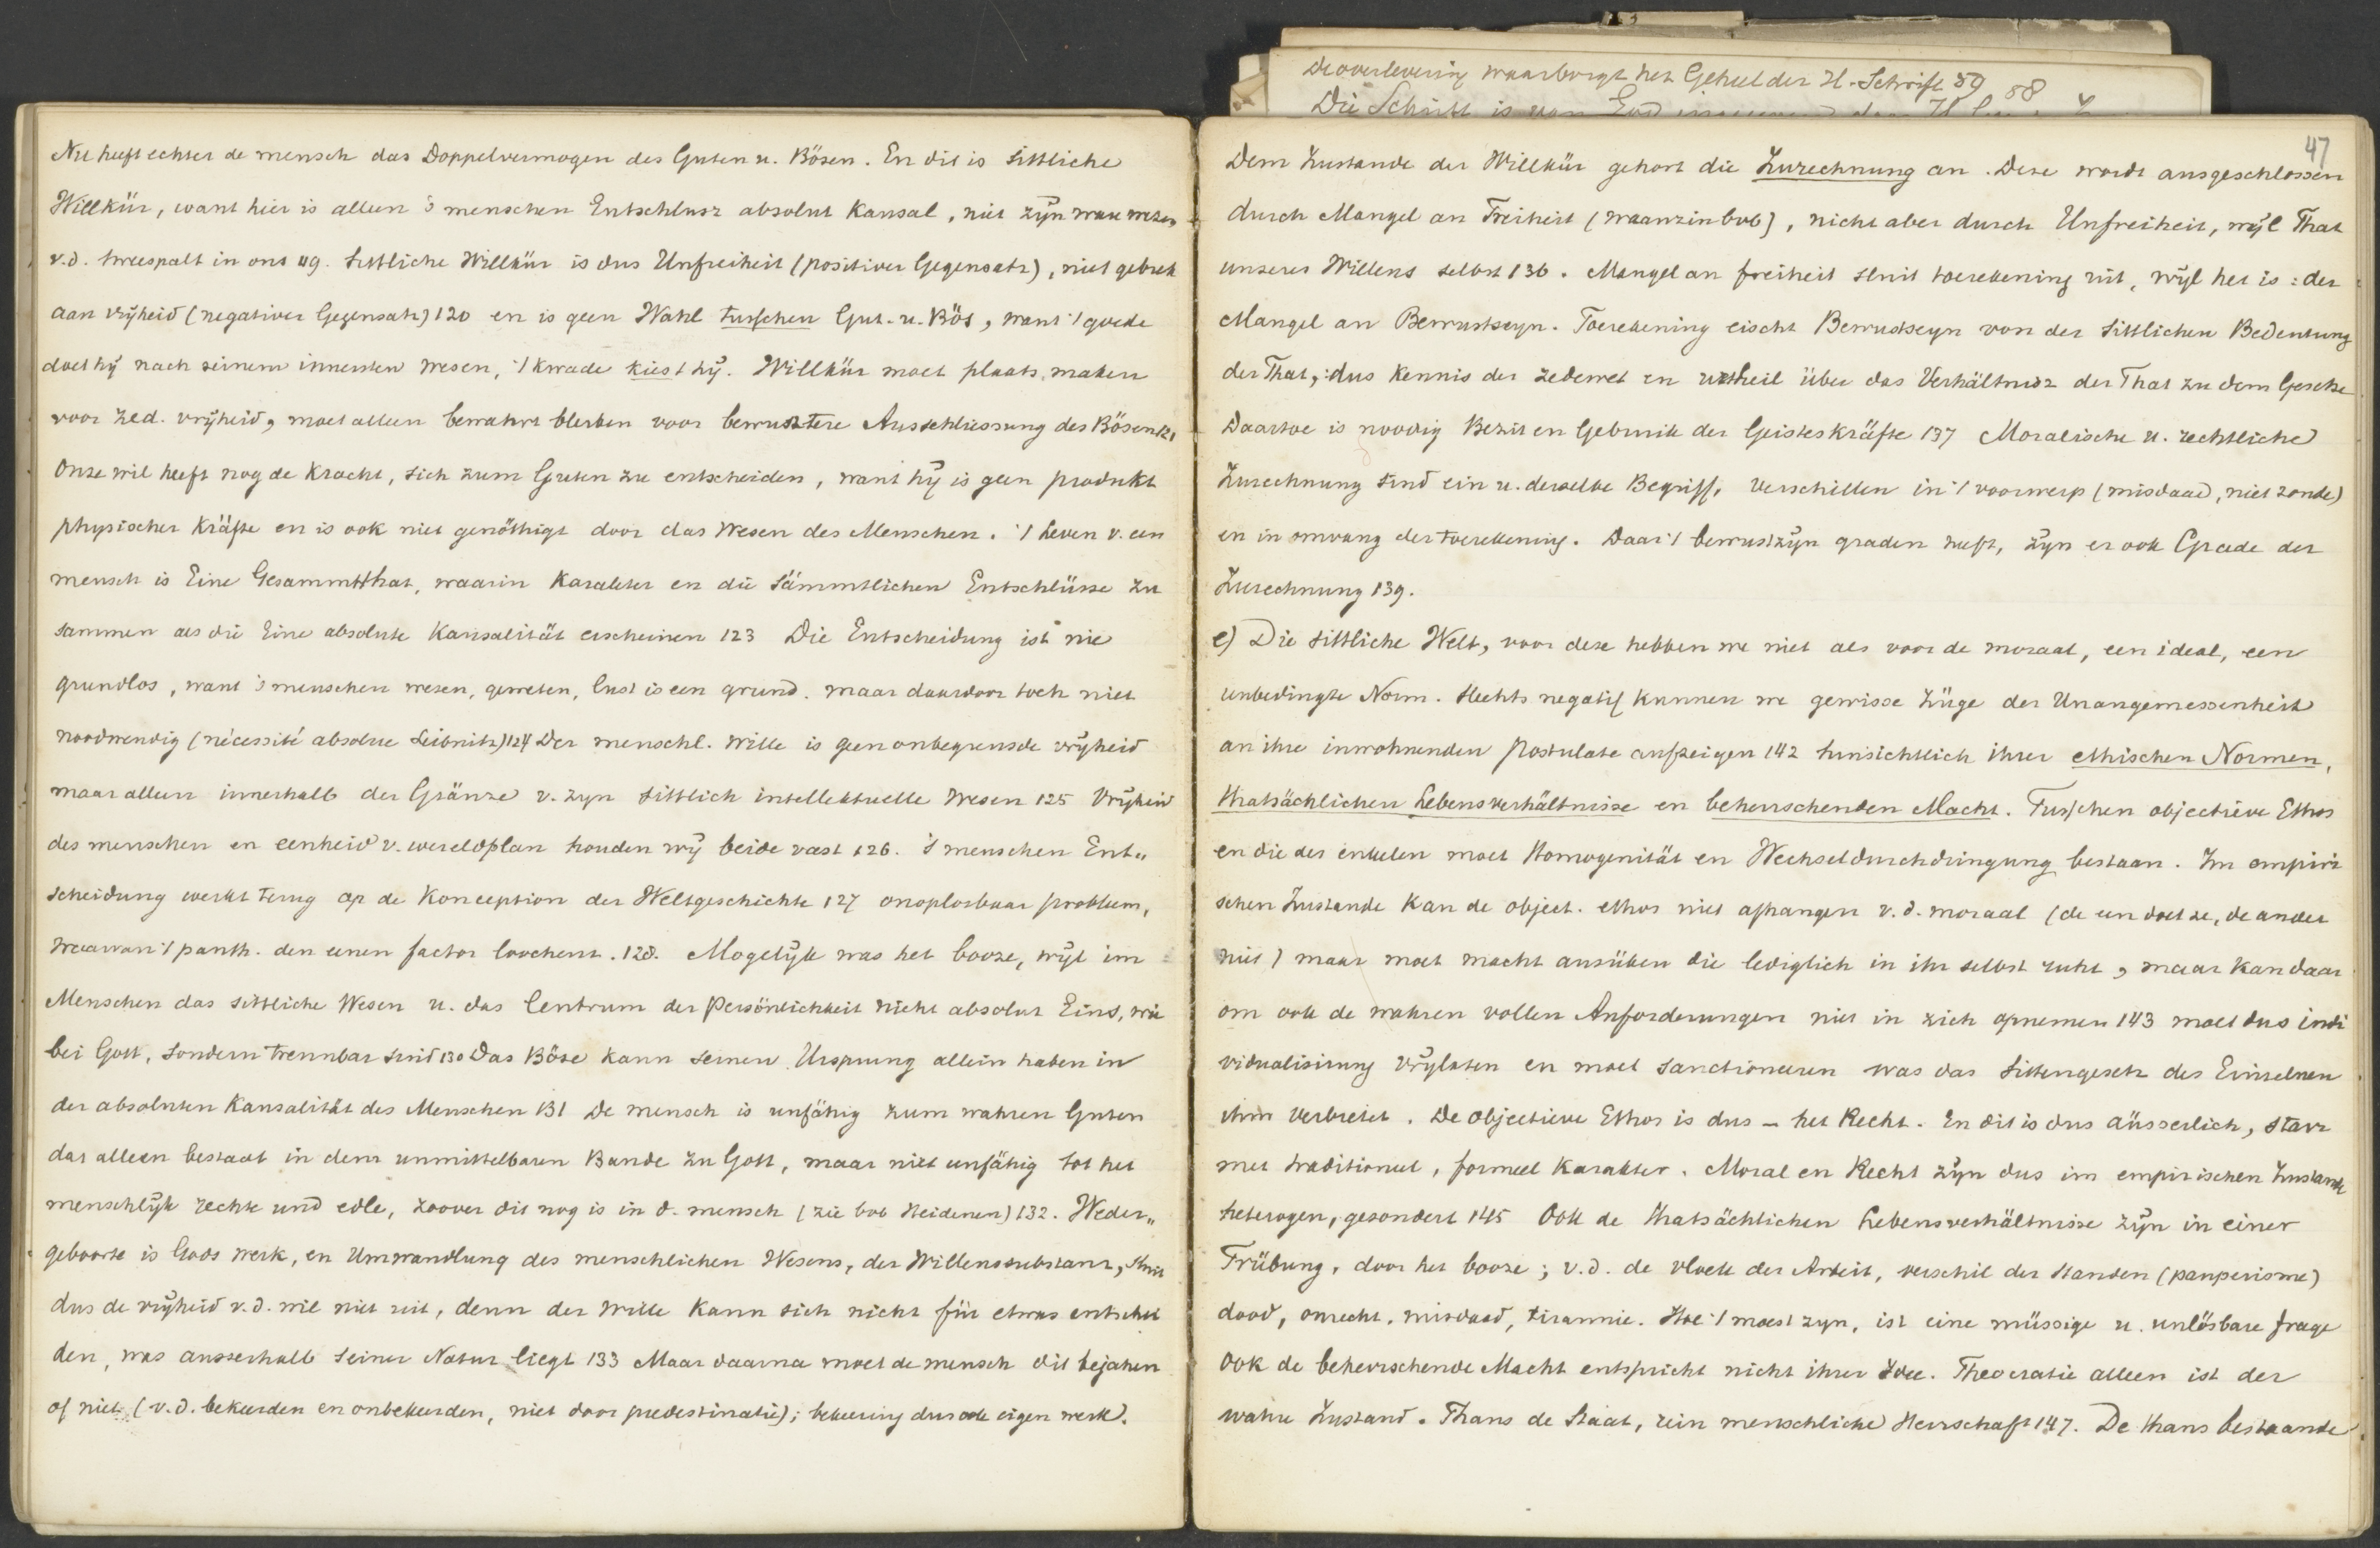 Nu heeft echter de mensch das Doppelvermogen des Guten u. Bösen. En dit is sittliche
Willkür, want hier is alleen 's menschen Entschlusz absolut Kausal, niet zijn ware wezen
v.d. tweespalt in ons 119. Sittliche Willkür is dus Unfreiheit (positiver Gegensatz), niet gebrek
aan vrijheid (negativer Gegensatz) 120 en is geen Wahl tusschen Gut- u. Bös, want 't goede
doet hij nach seinem innersten Wesen, 't kwade kiest hij. Willkür moet plaats maken
voor zed. vrijheid, moet alleen bewahrt bleiben voor bewusztere Ausschliessung des Bösen 121
Onze wil heeft nog de kracht, sich zum Guten zu entscheiden, want hij is geen produkt
physischer Kräfte en is ook niet genöthigt door das Wesen des Menschen. 't Leven v. een
mensch is Eine Gesammtthat, waarin Karakter en die sämmtlichen Entschlüsse zu
sammen als die Eine absolute Kausalität erscheinen 123 Die Entscheidung ist nie
grundlos, want 's menschen wesen, geweten, lust is een grund. maar daardoor toch niet
noodwendig (nécessité absolue Leibnitz) 124 Der menschl. Wille is geen onbegrensde vrijheid
maar alleen innerhalb der Gränze v. zyn sittlich intellektuelle Wesen 125 Vrijheid
des menschen en eenheid v. wereldplan houden wij beide vast 126. 's menschen Ent„
scheidung werkt terug op de Konception der Weltgeschichte 127 onoplosbaar probleem,
waarvan 't panth. den eenen factor loochent. 128. Mogelijk was het booze, wijl im
Menschen das sittliche Wesen u. das Centrum der Persönlichkeit nicht absolut Eins, wie
bei Gott, sondern trennbar sind 130 Das Böse kann seinen Ursprung allein haben in
der absoluten Kausalität des Menschen 131 De mensch is unfähig zum wahren Guten
dat alleen bestaat in dem unmittelbaren Bande zu Gott, maar niet unfähig tot het
menschlijk rechte und edle, zoover dit nog is in d. mensch (zie bvb Heidenen) 132. Weder„
geboorte is Gods werk, en Umwandlung des menschlichen Wesens, der Willenssubstanz, sluit
dus de vrijheid v.d. wil niet uit, denn der Wille kann sich nicht für etwas entschei
den, was ausserhalb seiner Natur liegt 133 Maar daarna moet de mensch dit bejahen
of niet (v.d. bekeerden en onbekeerden, niet door predestinatie); bekeering dus ook eigen werk.
De overlevering waarborgt het Geheel der H. Schrift 59 58
Die Schrift is van God
47
Dem Zustande der Willkür gehört die Zurechnung an. Deze wordt ausgeschlossen
durch Mangel an Freiheit (waanzin bvb), nicht aber durch Unfreiheit, wijl That
unseres Willens selbst 136. Mangel an freiheit sluit toerekening uit, wijl het is: der
Mangel an Bewustseyn. Toerekening eischt Bewustseyn von der sittlichen Bedeutung
der That,: dus Kennis der zedewet en urtheil über das Verhältnisz der That zu dem Gesetze
Daartoe is noodig Bezit en Gebruik der Geisteskräfte 137 Moralische u. rechtliche
Zurechnung sind ein u. derselbe Begriff, verschillen in 't voorwerp (misdaad, niet zonde)
en in omvang der toerekening. Daar 't bewustzijn graden heeft, zijn er ook Grade der
Zurechnung 139.
e) Die sittliche Welt, voor deze hebben we niet als voor de moraal, een ideal, een
unbedingte Norm. Slechts negatif kunnen we gewisse Züge der Unangemessenheit
an ihre inwohnenden Postulate aufzeigen 142 hinsichtlich ihrer ethischen Normen,
thatsächlichen Lebensverhältnisse en beherrschenden Macht. Tusschen objectieve Ethos
en die des enkelen moet Homogenität en Wechseldurchdringung bestaan. Im empiri
schen Zustande kan de object. ethos niet afhangen v.d. moraal (de een doet ze, de ander
niet) maar moet macht ausüben die lediglich in ihr selbst ruht, maar kan daar
om ook de wahren vollen Anforderungen niet in zich opnemen 143 moet dus indi
vidualisirung vrijlaten en moet sanctioneeren was das Sittengesetz des Einzelnen
ihm verbietet. De objectieve Ethos is dus – het Recht. En dit is dus äusserlich, starr
met traditioneel, formeel Karakter. Moral en Recht zijn dus im empirischen Zustande
heterogen, gesondert 145 Ook de thatsächlichen Lebensverhältnisse zijn in einer
Trübung, door het booze; v.d. de vloek der Arbeit, verschil der standen (pauperisme)
dood, onrecht, misdaad, tirannie. Hoe 't moest zyn, ist eine müssige u. unlösbare frage
Ook de beherrschende Macht entspricht nicht ihrer Idee. Theocratie alleen ist der
wahre Zustand. Thans de Staat, rein menschliche Herrschaft 147. De thans bestaande